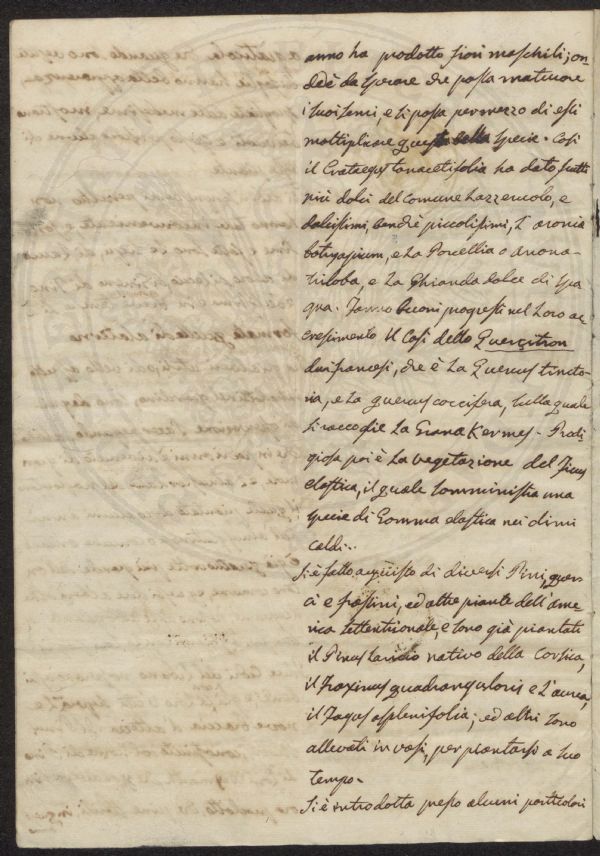 anno ha prodotto fiori maschili; on
dè è da sperare che possa maturare
i suoi semi, e si possa per mezzo di essi
moltiplicare questa bella specie. Così
il Crataegus tanacetifolia ha dato frutti
più dolci del comune Lazzeruolo, e
dolcissimi, benchè piccolissimi, l'aronia
botryapium, e la Porcellia o anona-
triloba, e la Ghianda dolce di Spa
gna. Fanno buoni progressi nel loro ac
crescimento il Così detto Querçitron
dai francesi, che è la Quercus tincto-
ria, e la quercus coccifera, sulla quale
si raccoglie la Grana Kermes. Prodi
giosa poi è la vegetazione del Ficus
elastica, il quale somministra una
specie di Gomma elastica nei climi
caldi..
Si è fatto acquisto di diversi Pini, quer
ci e frassini, ed altre piante dell'ame
rica settentrionale, e sono già piantati
il Pinus Laricio nativo della Corsica,
il Fraxinus quadrangularis e l'aurea,
il Fagus asplenifolia; ed altri sono
allevati in vasi, per piantarsi a suo
tempo.
Si è introdotta presso alcuni particolari